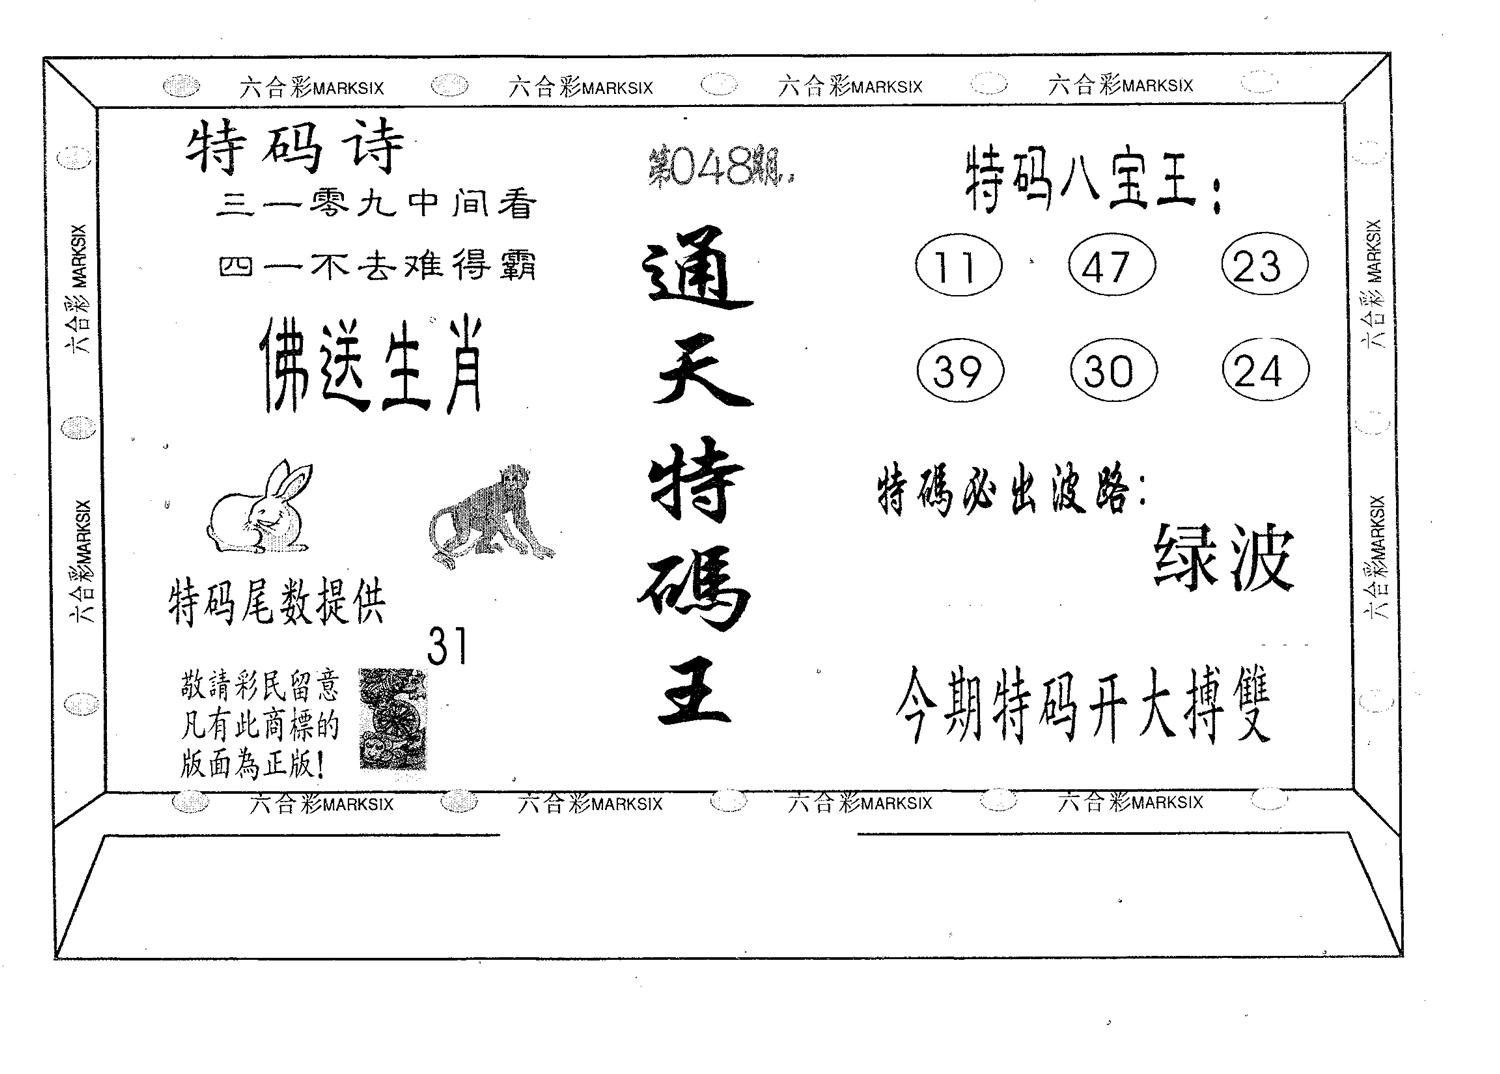 六合彩MARKSIX 六合彩MARKSIX 六合彩MARKSIX 六合彩MARKSIX
六合彩 MARKSIX
六合彩MARKSIX
特码诗
三一零九中间看
四一不去难得霸
佛送生肖
特码尾数提供
31
敬請彩民留意
凡有此商標的
版面為正版!
第048期
通天特碼王
特码八宝王:
11 47 23
39 30 24
特碼必出波路:
绿波
今期特码开大搏雙
六合彩 MARKSIX
六合彩MARKSIX
六合彩MARKSIX 六合彩MARKSIX 六合彩MARKSIX 六合彩MARKSIX